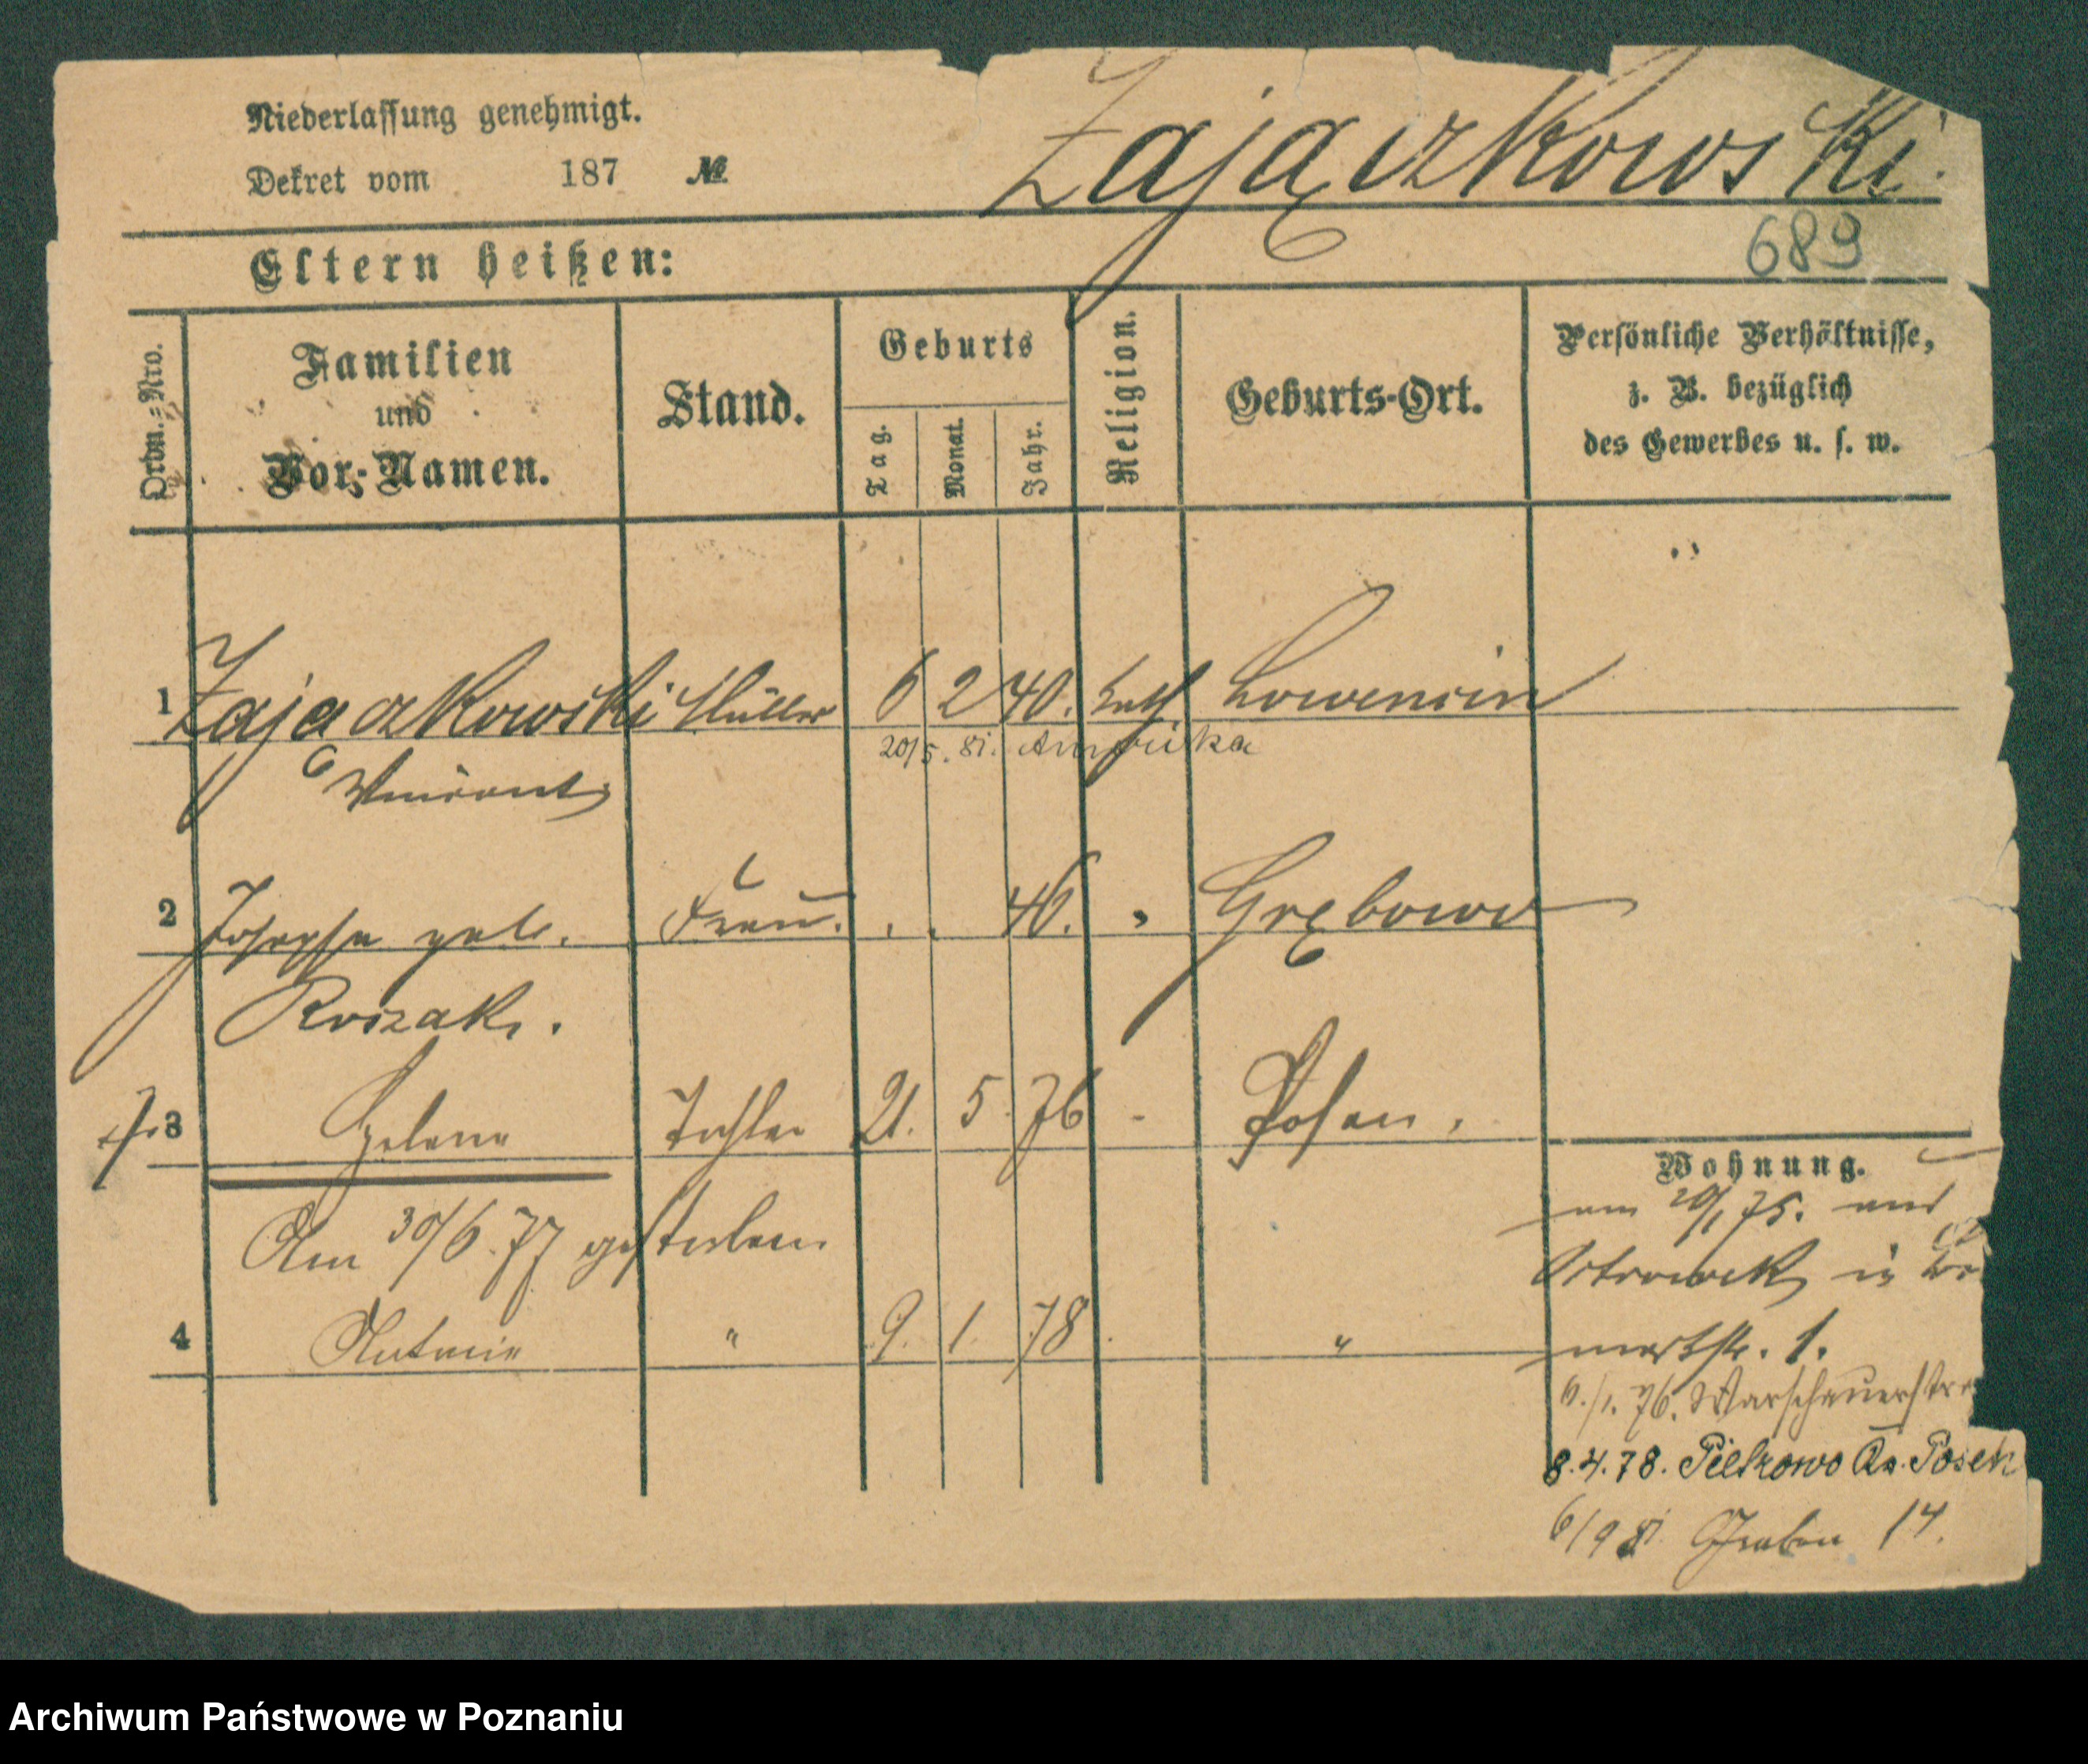 Niederlassung genehmigt.
Zajączkowski.
Dekret vom 187 №
Eltern heißen:
689
Ordn.=Nro.
Familien
und
Vor-Namen.
Stand.
Geburts
Tag.
Monat.
Jahr.
Religion.
Geburts-Ort.
Persönliche Verhältnisse,
z. B. bezüglich
des Gewerbes u. s. w.
1 Zajączkowski Müller 6 2 40. kath.
20/5. 81. Amerika
Vincent
2 Josepha geb. Frau. . . 46. " Grębowo
3 Helene Tochter 21. 5. 76 - Posen.
Wohnung.
am 20/1 75. aus
Am 30/6. 77 gestorben
Ostrowek in
4 Antonie " 9. 1. 78. "
marktstr. 1.
6./1. 76. Warschauerstr
8.4.78. Kr. Posen
6/9 81. Graben 14.
Archiwum Państwowe w Poznaniu